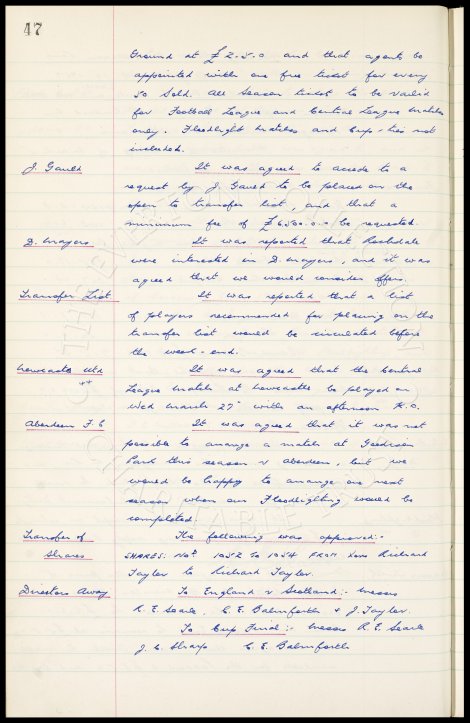 47
Ground at £2.5.0 and that agents be
appointed with one free ticket for every
50 sold. All Season ticket to be valid
for Football League and Central League matches
only. Floodlight matches and Cup-ties not
included.
J. Gauld It was agreed to accede to a
request by J. Gauld to be placed on the
open to transfer list, and that a
minimum fee of £6,500.0.0 be requested.
D. Mayers It was reported that Rochdale
were interested in D. Mayers, and it was
agreed that we would consider offers.
Transfer List It was reported that a list
of players recommended for placing on the
transfer list would be circulated before
the week-end.
Newcastle Utd It was agreed that the Central
League match at Newcastle be played on
Wed March 27th with an afternoon K.O.
Aberdeen F.C It was agreed that it was not
possible to arrange a match at Goodison
Park this season v Aberdeen, but we
would be happy to arrange one next
season when our Floodlighting would be
completed.
Transfer of The following was approved:-
Shares SHARES: Nos 1052 TO 1054 FROM Richard
Taylor to Richard Taylor.
Directors Away To England v Scotland:- Messrs
R. E. Searle, C. E. Balmforth & J. Taylor.
To Cup Final:- Messrs R. E. Searle
J. C. Sharp C. E. Balmforth